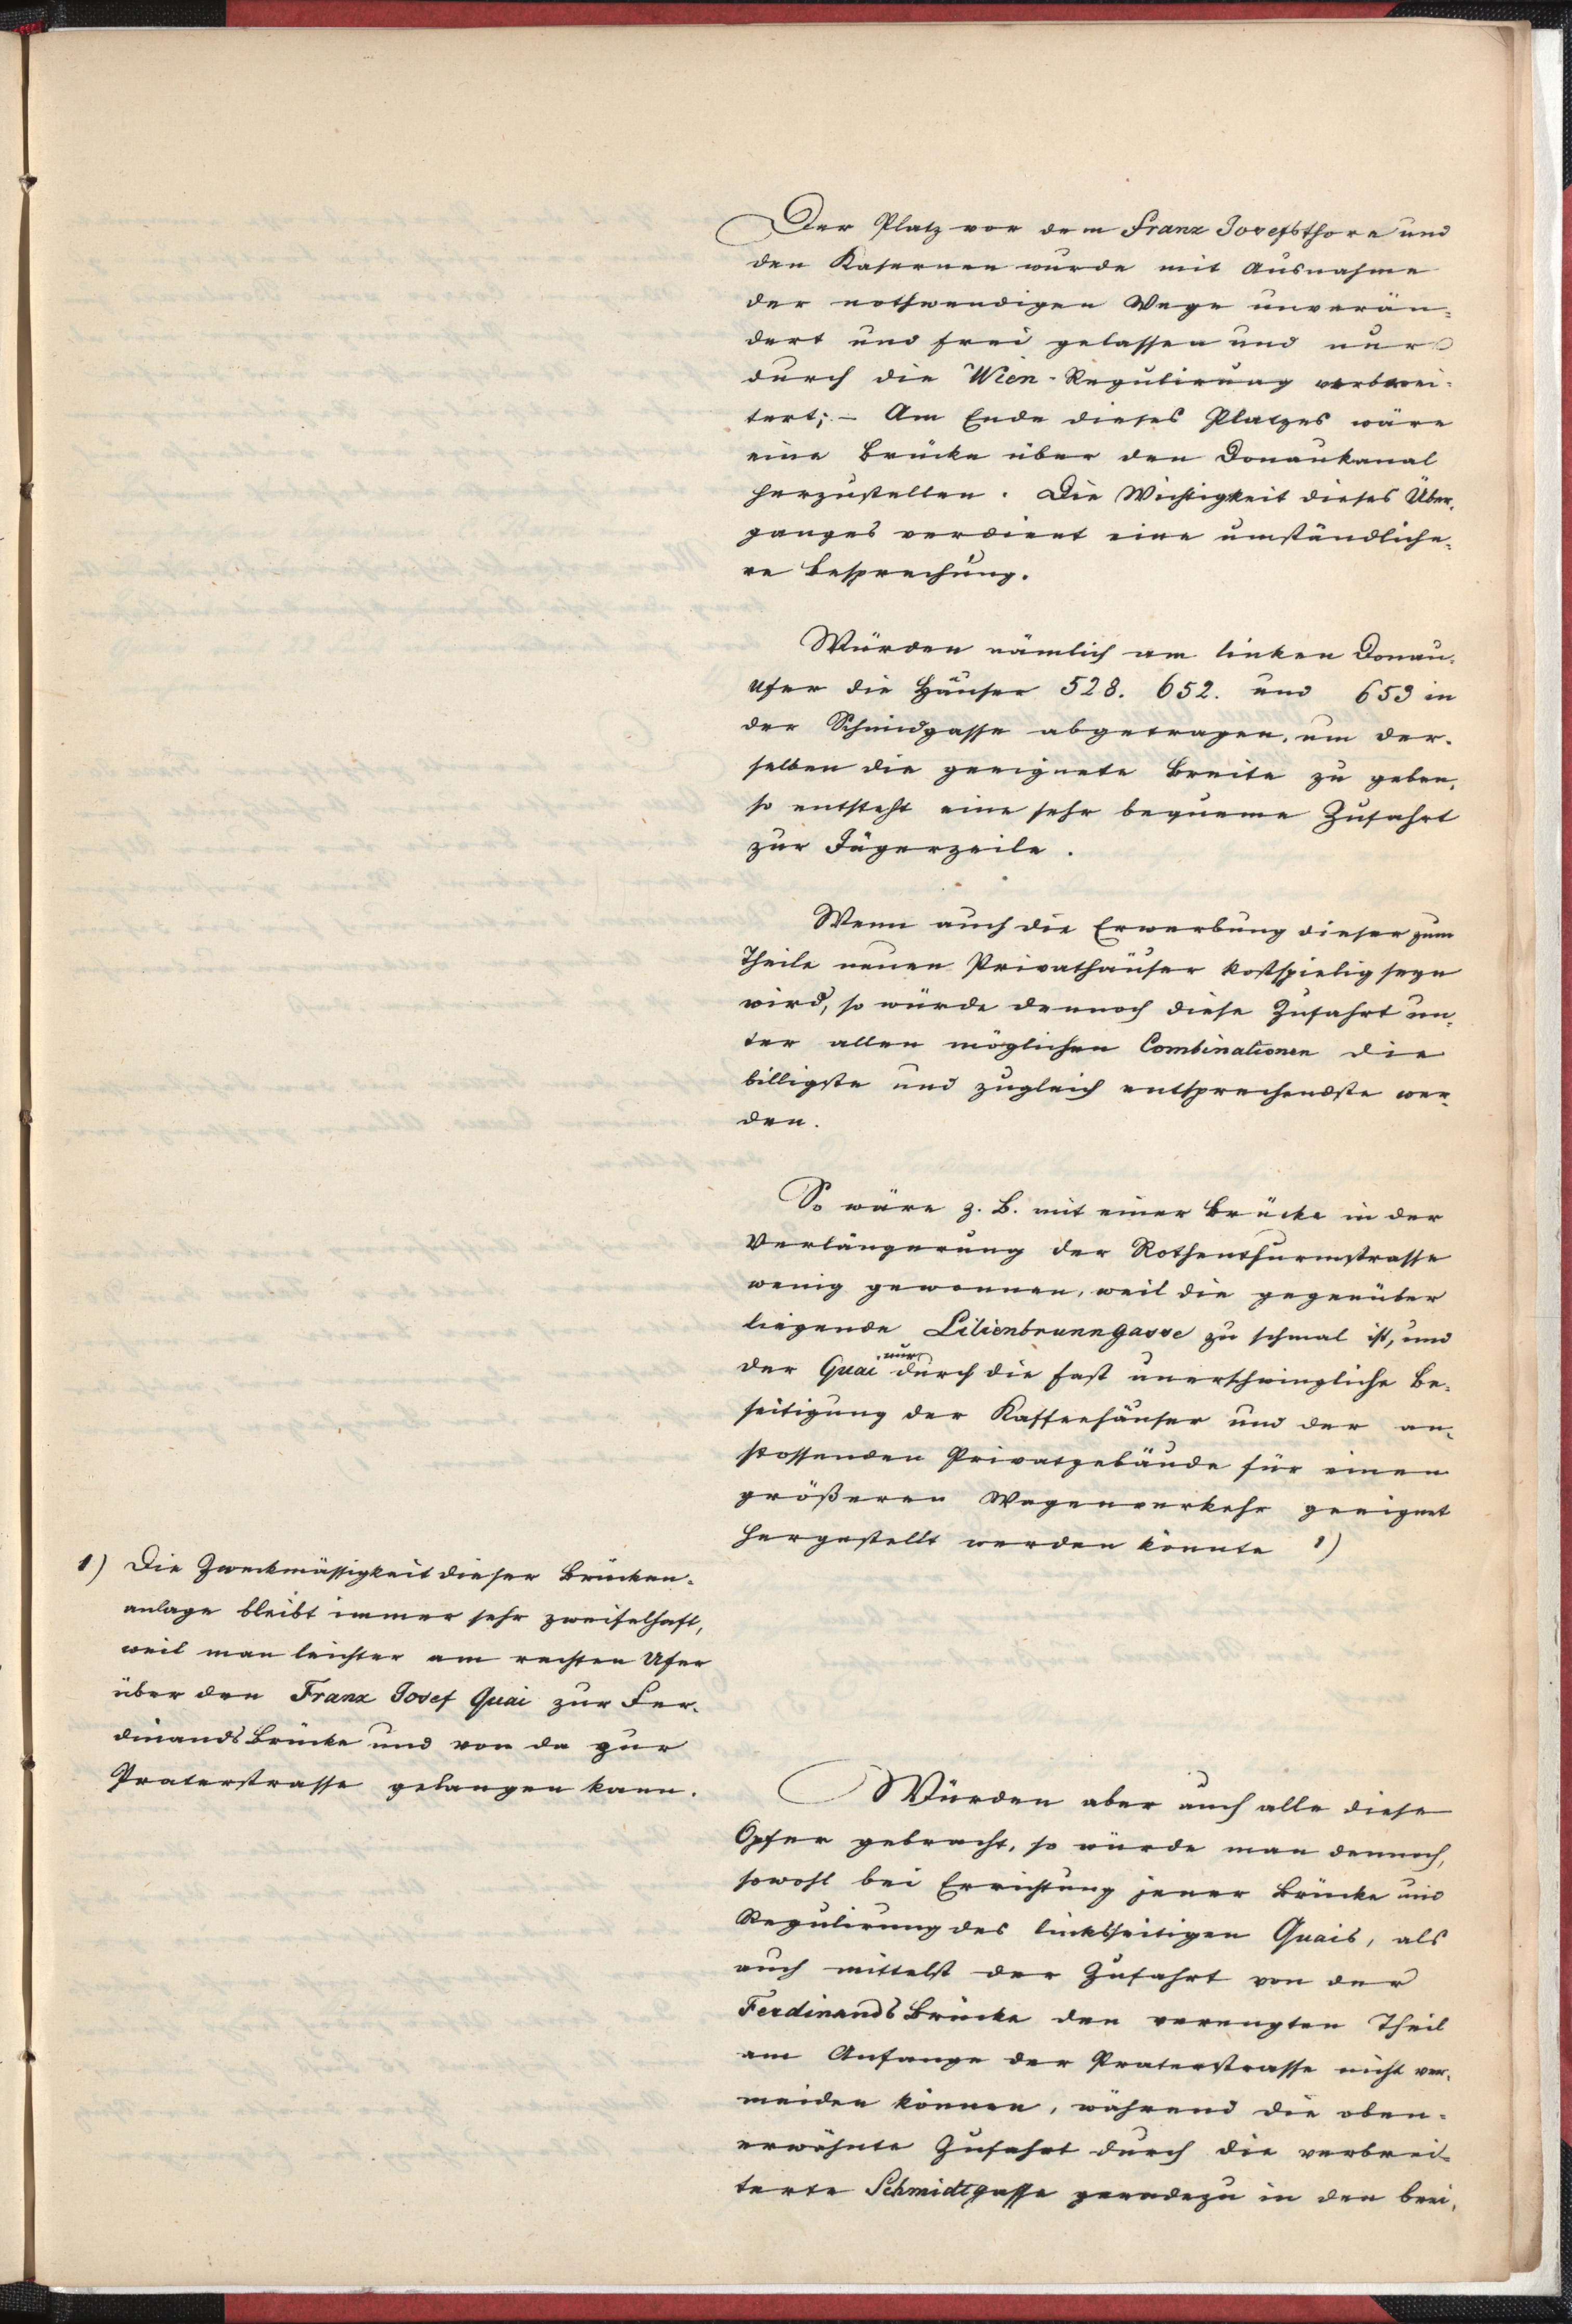 Der Platz vor dem Franz Josefsthore und
den Kasernen wurde mit Ausnahme
der nothwendigen Wege unverän-
dert und frei gelassen und nur
durch die Wien-Regulirung verbrei-
tert; – Am Ende dieses Platzes wäre
eine Brücke über den Donaukanal
herzustellen. Die Wichtigkeit dieses Über-
ganges verdient eine umständliche-
re Besprechung.
Würden nämlich am linken Donau-
Ufer die Häuser 528. 652. und 653 in
der Schmidgasse abgetragen, um der-
selben die geeignete Breite zu geben,
so entsteht eine sehr bequeme Zufahrt
zur Jägerzeile.
Wenn auch die Erwerbung dieser zum
Theile neuen Privathäuser kostspielig seyn
wird, so würde dennoch diese Zufahrt un-
ter allen möglichen Combinationen die
billigste und zugleich entsprechendste wer-
den.
So wäre z. B. mit einer Brücke in der
Verlängerung der Rothenthurmstrasse
wenig gewonnen, weil die gegenüber
liegende Lilienbrunngasse zu schmal ist, und
der Quai nur durch die fast unerschwingliche Be-
seitigung der Kaffeehäuser und der an-
stossenden Privatgebäude für einen
größeren Wagenverkehr geeignet
hergestellt werden könnte 1)
1) Die Zweckmässigkeit dieser Brücken-
anlage bleibt immer sehr zweifelhaft,
weil man leichter am rechten Ufer
über den Franz Josef Quai zur Fer-
dinands Brücke und von da zur
Praterstrasse gelangen kann.
Würden aber auch alle diese
Opfer gebracht, so würde man dennoch,
sowohl bei Errichtung jener Brücke und
Regulirung des linksseitigen Quais, als
auch mittelst der Zufahrt von der
Ferdinands Brücke den verengten Theil
am Anfange der Praterstrasse nicht ver-
meiden können, während die oben-
erwähnte Zufahrt durch die verbrei-
terte Schmidtgasse geradezu in den brei-